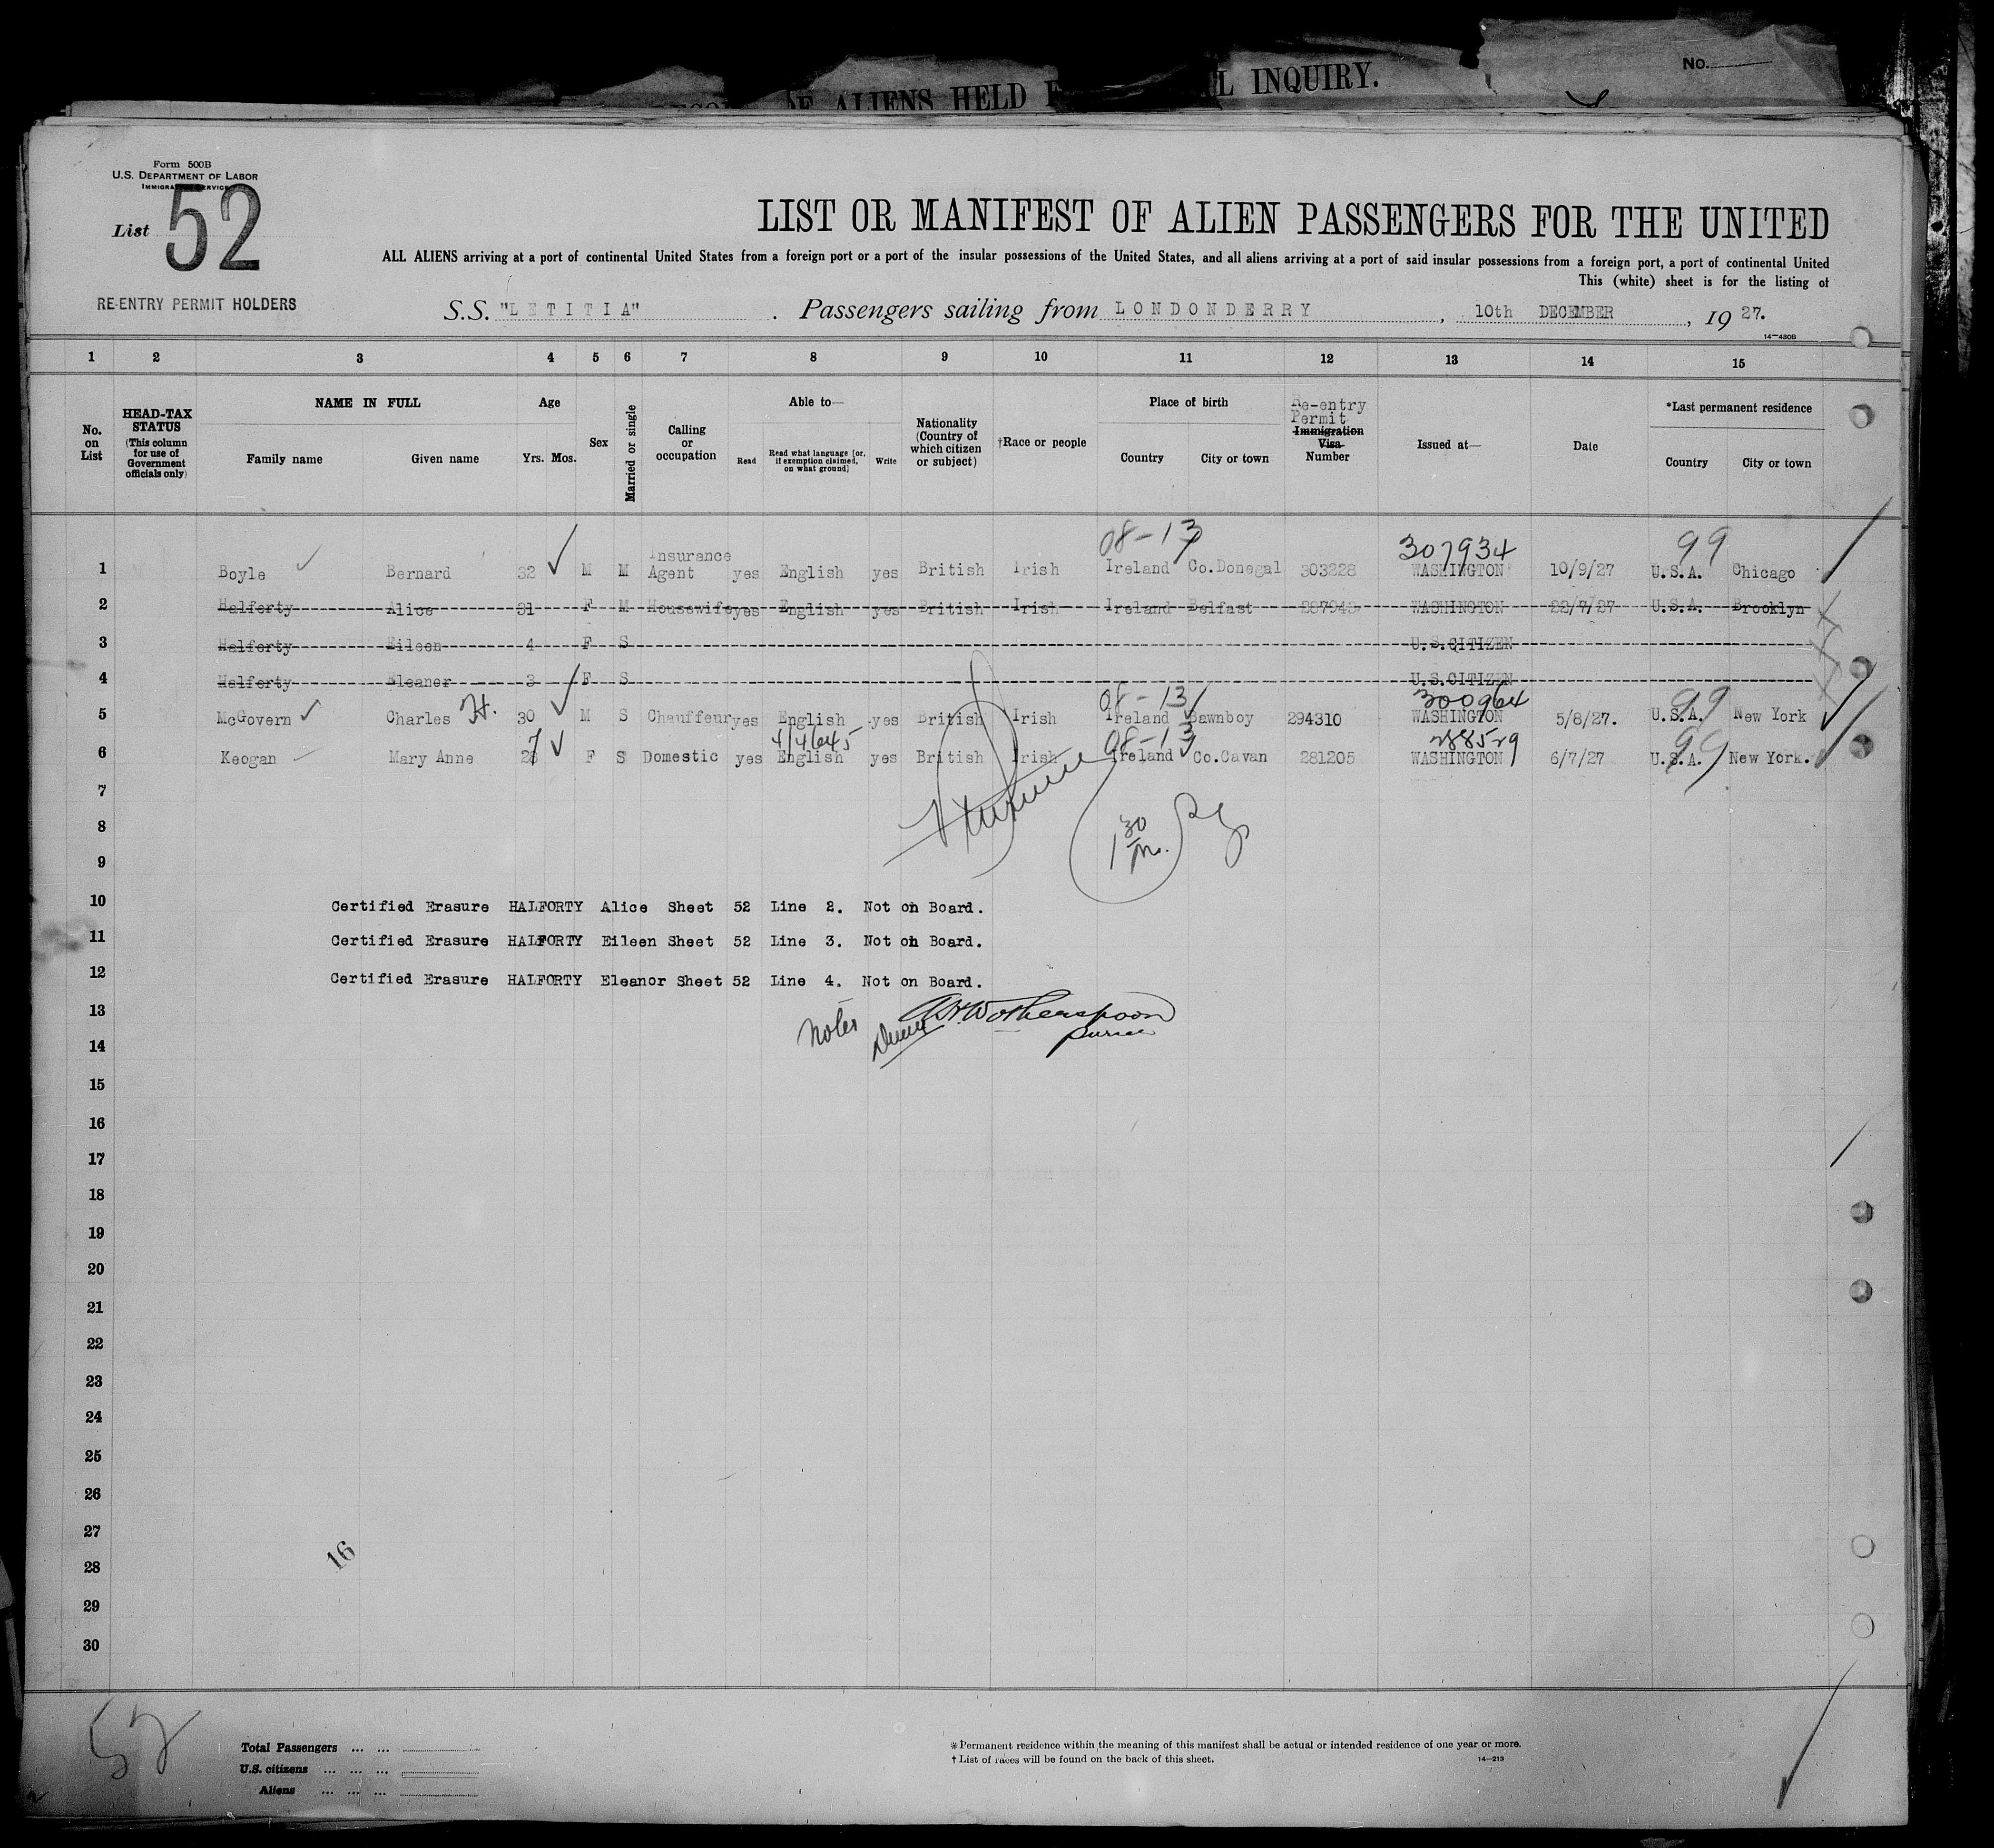 No.
OF ALIENS HELD F L INQUIRY.
Form 500B
U.S. DEPARTMENT OF LABOR
IMMIGRATION SERVICE
List 52
LIST OR MANIFEST OF ALIEN PASSENGERS FOR THE UNITED
ALL ALIENS arriving at a port of continental United States from a foreign port or a port of the insular possessions of the United States, and all aliens arriving at a port of said insular possessions from a foreign port, a port of continental United
This (white) sheet is for the listing of
RE-ENTRY PERMIT HOLDERS
S.S. "LETITIA" . Passengers sailing from LONDONDERRY , 10th DECEMBER , 19 27.
14—480B
1 2 3 4 5 6 7 8 9 10 11 12 13 14 15
No. on List
HEAD-TAX STATUS (This column for use of Government officials only)
NAME IN FULL
Family name Given name
Age
Yrs. Mos.
Sex
Married or single
Calling or occupation
Able to—
Read Read what language [or, if exemption claimed, on what ground] Write
Nationality (Country of which citizen or subject)
†Race or people
Place of birth
Country City or town
Re-entry Permit Immigration Visa Number
Issued at—
Date
*Last permanent residence
Country City or town
08-13 307934 99
1 Boyle Bernard 32 M M Insurance Agent yes English yes British Irish Ireland Co.Donegal 303228 WASHINGTON 10/9/27 U.S.A. Chicago
2 Halforty Alice 31 F M Housewife yes English yes British Irish Ireland Belfast 287943 WASHINGTON 22/7/27 U.S.A. Brooklyn
3 Halforty Eileen 4 F S U.S.CITIZEN
4 Halforty Eleanor 3 F S U.S.CITIZEN
08-13 300964 99
5 McGovern Charles H. 30 M S Chauffeur yes English yes British Irish Ireland Bawnboy 294310 WASHINGTON 5/8/27. U.S.A. New York
7 4/4645 08-13 288529 99
6 Keogan Mary Anne 28 F S Domestic yes English yes British Irish Ireland Co.Cavan 281205 WASHINGTON 6/7/27 U.S.A. New York.
7
8
1 30
9
10 Certified Erasure HALFORTY Alice Sheet 52 Line 2. Not on Board.
11 Certified Erasure HALFORTY Eileen Sheet 52 Line 3. Not on Board.
12 Certified Erasure HALFORTY Eleanor Sheet 52 Line 4. Not on Board.
13 Wotherspoon
Noted
Purser
14
15
16
17
18
19
20
21
22
23
24
25
26
27
16
28
29
30
52
Total Passengers ... ...
U.S. citizens ... ... ...
Aliens ... ... ...
*Permanent residence within the meaning of this manifest shall be actual or intended residence of one year or more.
†List of races will be found on the back of this sheet.
14—213